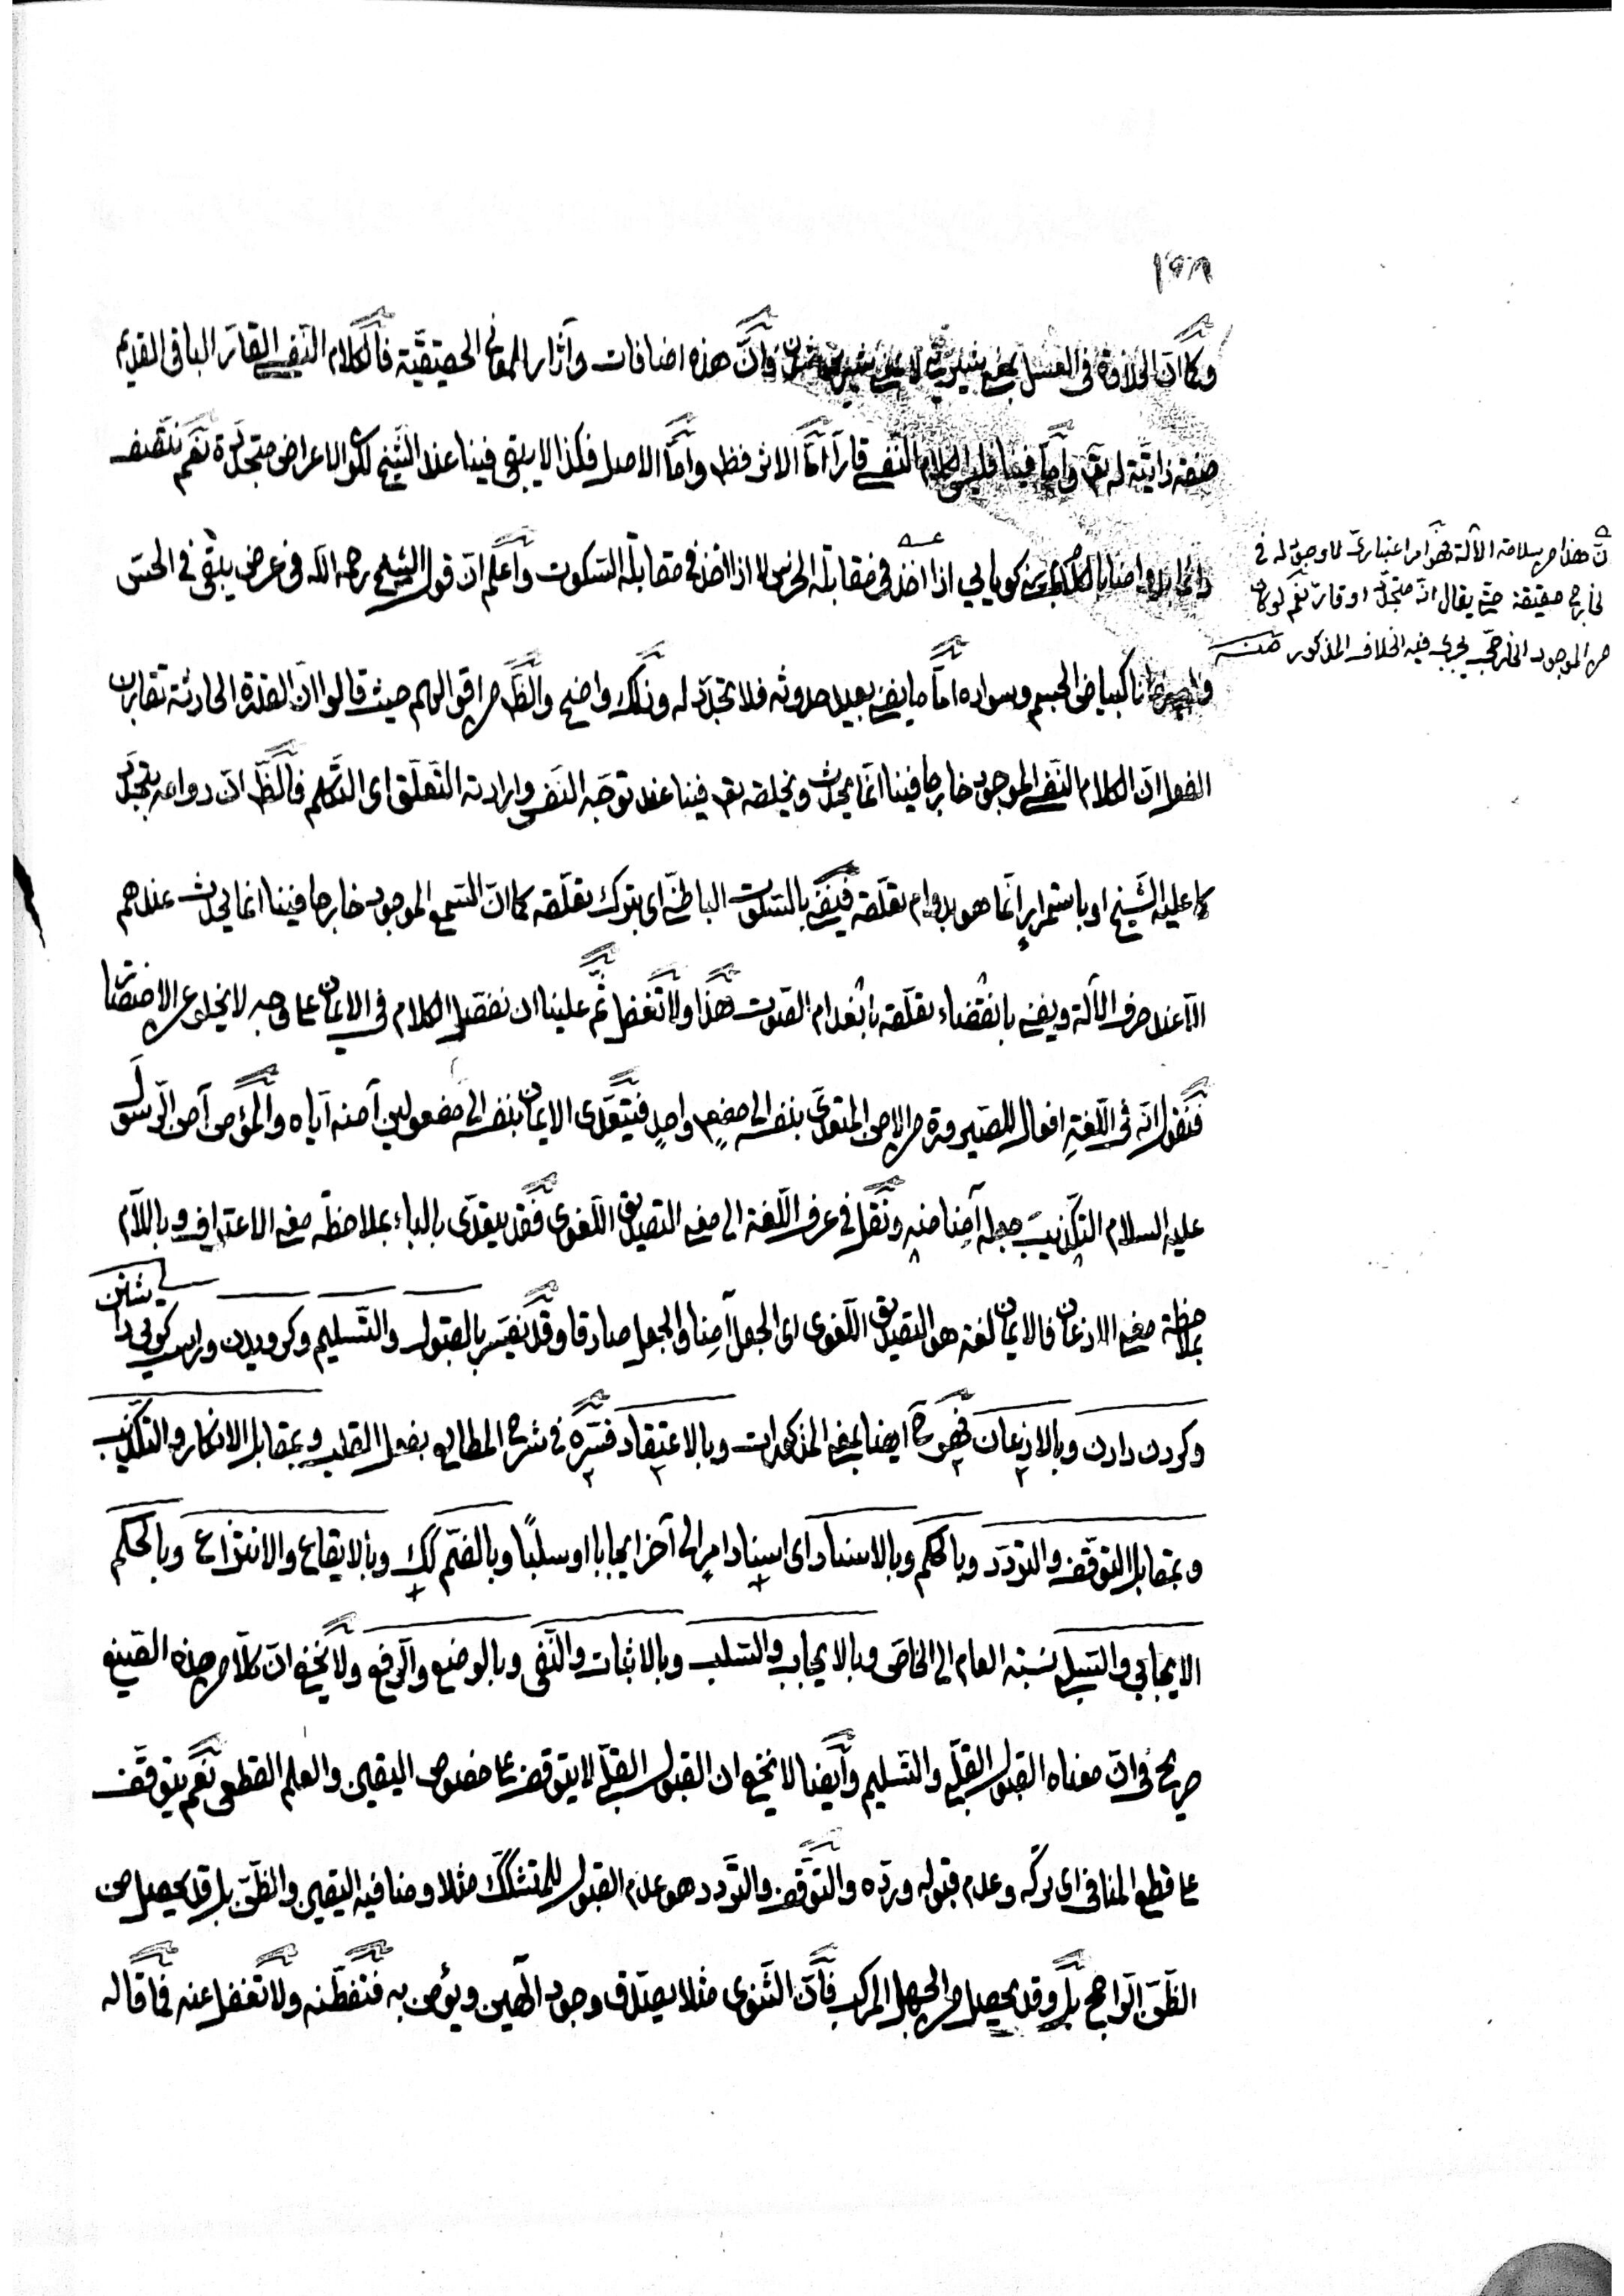 ١٥٨
وكما ان الحلاوة فى العسل بمعنى شيرينى لا بمعنى فان هذه اضافات وآثار للمعانى الحقيقية فالكلام النفسى القارّ الباقى القديم
صفة ذاتية له تعـ واما فينا فليس الكلام النفسى قارّا اما الاثر فظـ واما الاصل فكذا لا يبقى فينا عند الشيخ لكون الاعراض متجددة نعم نتصف
دائما ايضا بالكلام بمعنى كويايى اذا اخذ فى مقابلة الخرس لا اذا اخذ فى مقابلة السكوت واعلم ان قول الشيخ رحمه الله فى عرض يبقى فى الحسّ
كبياض الجسم وسواده اما ما يفنى بعيد حدوثه فلا تجدّد له وذلك واضح والظـ من اقوالهم حيث قالوا ان القدرة الحادثة تقارن
الفعل ان الكلام النفسى الموجود خارجا فينا انما يحدث ويخلقه تعـ فينا عند توجه النفس وارادته التعلق اى التكلم فالظـ ان دوامه بتجدّد
كما عليه الشيخ او باستمرارٍ انما هو بدوام تعلقه فيفنى بالسكوت الباطنى اى بترك تعلقه كما ان السمع الموجود خارجا فينا انما يحدث عندهم
الا عند صرف الآلة ويفنى بانقضاء تعلقه بانعدام الصوت هذا ولا تغفل ثم علينا ان نفصّل الكلام فى الايمان على وجه لا يخلو عن الاختصار
فنقول انه فى اللغةِ افعال للصيرورة من الامن المتعدى بنفسه الى مفعولٍ واحدٍ فيتعدى الايمان بنفسه الى مفعولين آمنه اياه والمؤمن آمن الرسول
عليه السلام التكذيبَ جعله آمنا منه ونقل فى عرف اللغة الى معنى التصديق اللغوى فقد يتعدى بالباء بملاحظة معنى الاعتراف وباللام
بملاحظة معنى الاذعان فالايمان لغة هو التصديق اللغوى اى الجعل آمِنا والجعل صادقا وقد يفسّر بالقبول والتسليم وكرويدن وراست كوى داشتن
وكردن دادن وبالاذعان فهو ايضا بمعنى المذكورات وبالاعتقاد فسّره فى شرح المطالع بفعل القلب وبمقابل الانكار والتكذيب
وبمقابل التوقف والتردد وبالحكم وبالاسناد اى اسناد امرٍ الى آخر ايجابا او سلبًا وبالضمّ كك وبالايقاع والانتزاع وبالحكم
الايجابى والسلبى نسبة العام الى الخاص وبالايجاب والسلب وبالاثبات والنفى وبالوضع والرفع ولا يخفى ان كلا من هذه الصيغ
صريح فى ان معناه القبول القلبى والتسليم وايضا لا يخفى ان القبول القلبى لا يتوقف على خصوص اليقين والعلم القطعى نعم يتوقف
على قطع المنافى اى تركه وعدم قبوله وردّه والتوقف والتردد هو عدم القبول للمتشكك مثلا ومنافيه اليقين والظنّ بل قد يحصل من
الظن الراجح بل وقد يحصل من الجهل المركب فان الثنوى مثلا يصدّق وجود الٰهين ويؤمن به فتفطّنه ولا تغفل عنه فما قاله
انّ هذا من سلامة الآلة فهو امر اعتبارىّ لا وجود له فى
الخارج حقيقة حتى يقال انه متجدّد او قارّ نعم لو كان
من الموجود الخارجى يجرى فيه الخلاف المذكور منه